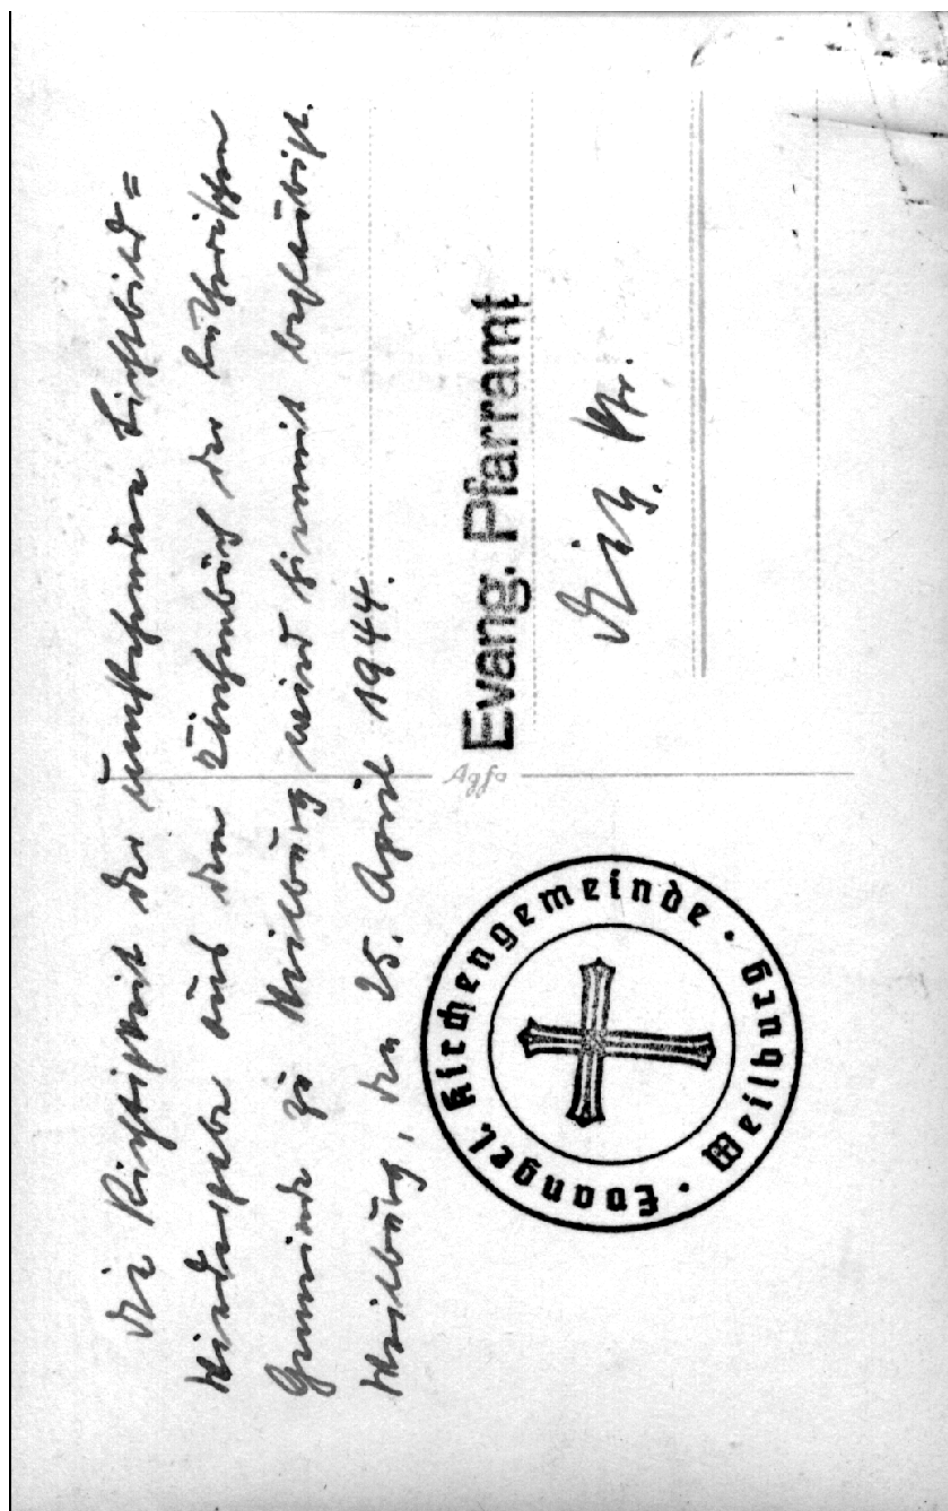 Die Richtigkeit der umstehenden Lichtbild=
Wiedergabe aus dem Kirchenbuch der lutherischen
Gemeinde zu Weilburg wird hiermit beglaubigt.
Weilburg, den 25. April 1944.
Evang. Pfarramt
Pfr.
Agfa
Evangel. Kirchengemeinde · Weilburg ·